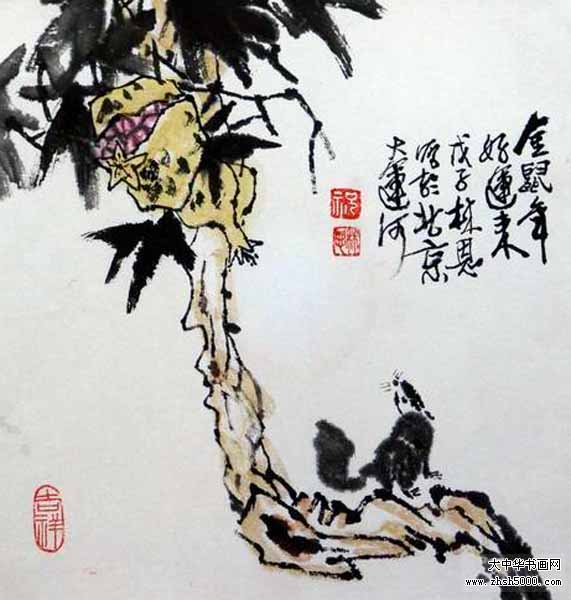 金鼠年
好運来
戊子林恩
写於北京
大運河
吉祥
大中华书画网
www.zhsh5000.com